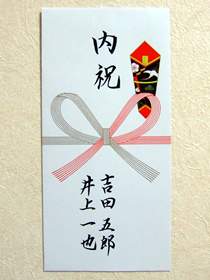 内祝
吉田五郎
井上一也